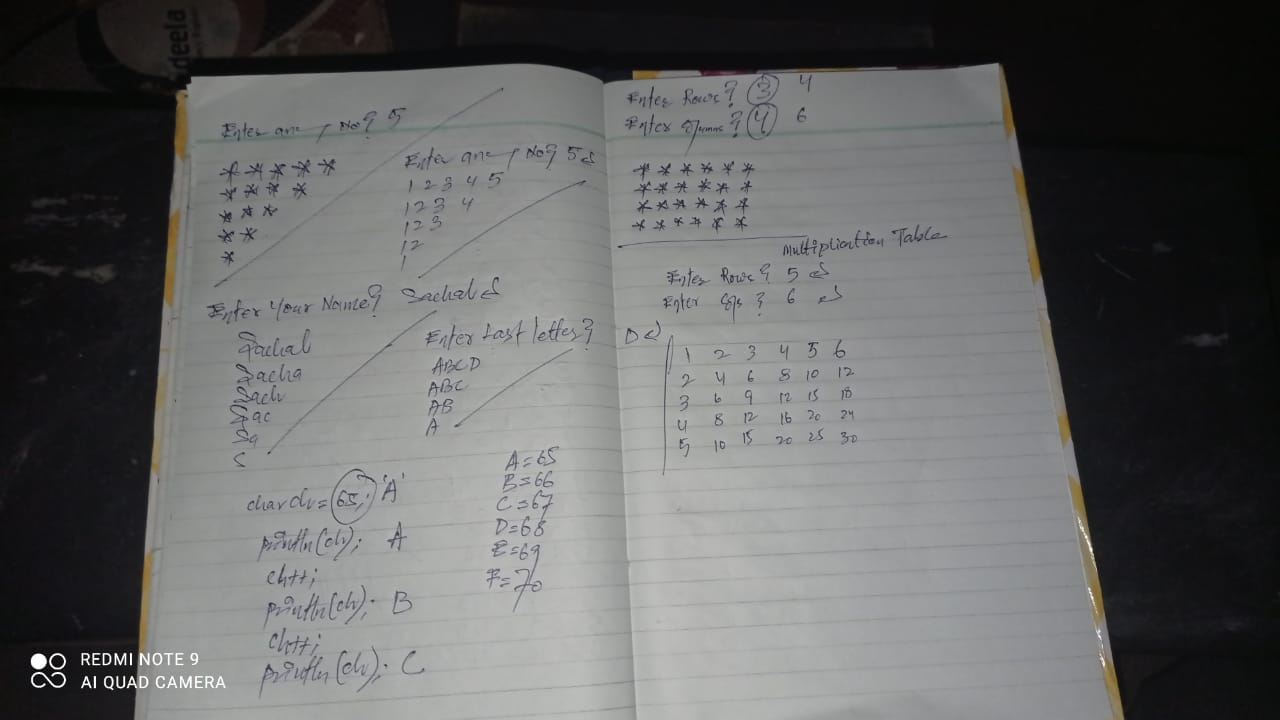 deela
Enter any No? 5
* * * * *
* * * *
* * *
* *
*
Enter any No? 5
1 2 3 4 5
1 2 3 4
1 2 3
1 2
1
Enter Your Name? Sachal
Sachal
Sacha
Sach
Sac
Sa
S
Enter Last letter?
ABCD
ABC
AB
A
char ch = 65; 'A'
println(ch); A
ch++;
println(ch); B
ch++;
println(ch); C
A=65
B=66
C=67
D=68
E=69
F=70
Enter Rows? 3 4
Enter ? 4 6
* * * * * *
* * * * * *
* * * * * *
* * * * * *
Multiplication Table
Enter Rows? 5
Enter ? 6
1 2 3 4 5 6
2 4 6 8 10 12
3 6 9 12 15 18
4 8 12 16 20 24
5 10 15 20 25 30
REDMI NOTE 9
AI QUAD CAMERA